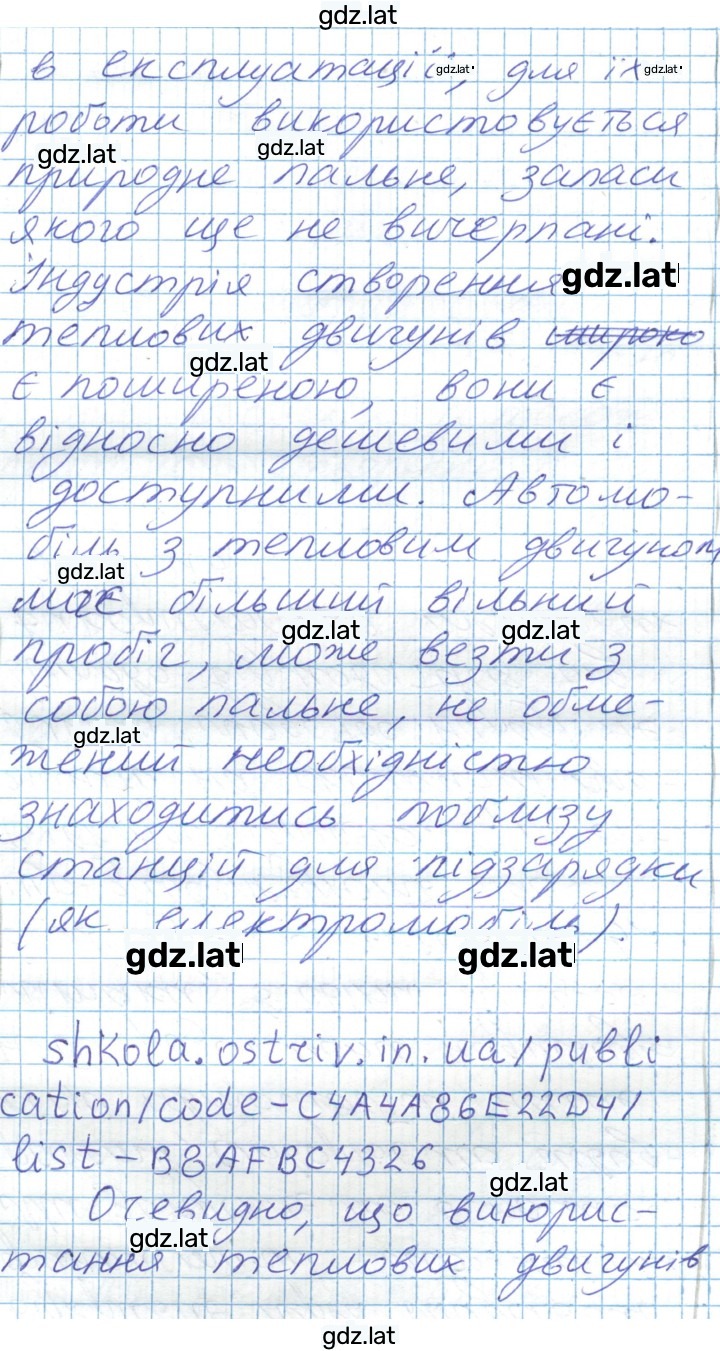 gdz.lat
в експлуатації, для їх
gdz.lat gdz.lat
роботи використовується
gdz.lat gdz.lat
природне пальне, запаси
якого ще не вичерпані.
Індустрія створення gdz.lat
теплових двигунів широко
gdz.lat
є поширеною, вони є
відносно дешевими і
доступними. Автомо-
біль з тепловим двигуном
gdz.lat
має більший вільний
gdz.lat gdz.lat
пробіг, може везти з
собою пальне, не обме-
gdz.lat
жений необхідністю
знаходитись поблизу
станцій для підзарядки
(як електромобіль).
gdz.lat gdz.lat
shkola.ostriv.in.ua/publi
cation/code-C4A4A86E22D4/
list-B8AFBC4326
gdz.lat
Очевидно, що викорис-
gdz.lat
тання теплових двигунів
gdz.lat